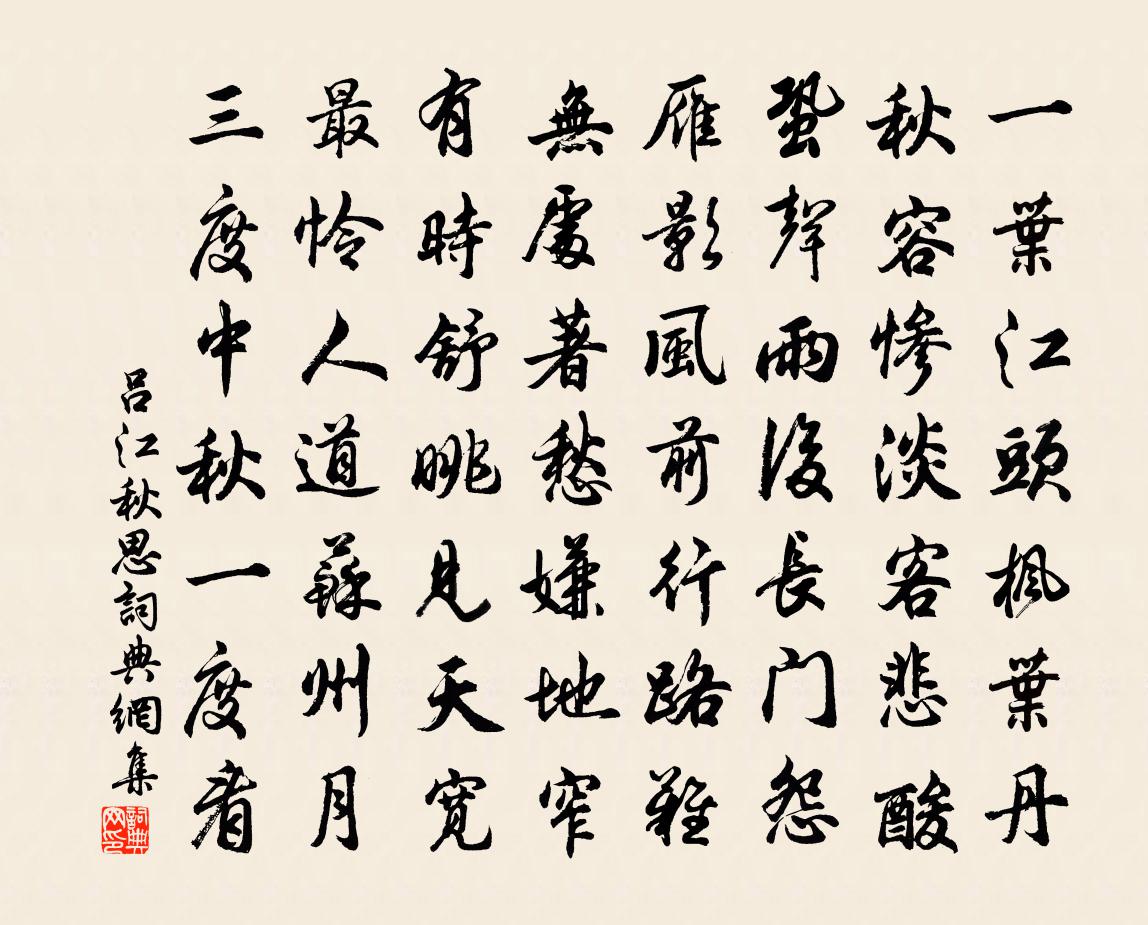 一葉江頭楓葉丹
秋容慘淡客悲酸
蛩聲雨後長门怨
雁影風前行路難
無處著愁嫌地窄
有時舒眺見天寬
最憐人道蘇州月
三度中秋一度看
呂江秋思詞典網集
詞典
网印